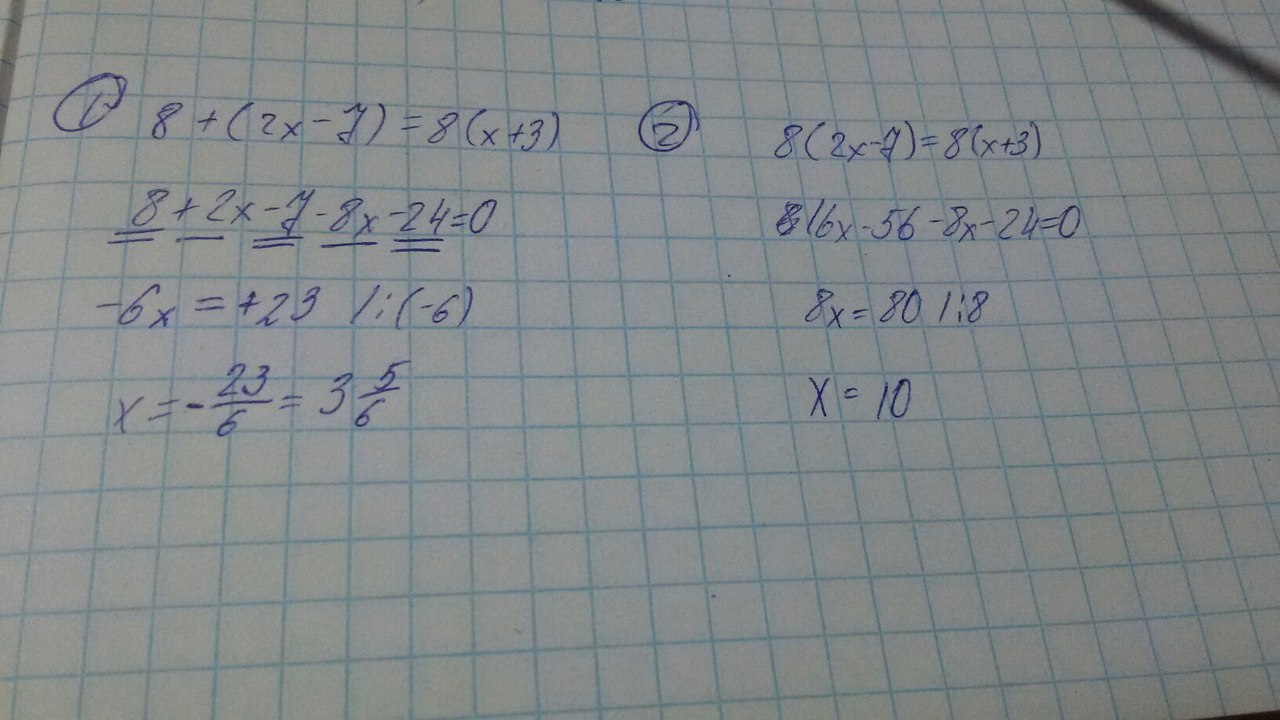 1 8 + (2x - 7) = 8(x+3)
8 + 2x - 7 - 8x - 24 = 0
-6x = +23 /:(-6)
x = - 23/6 = 3 5/6
2 8(2x-7)=8(x+3)
16x - 56 - 8x - 24=0
8x = 80 /:8
x = 10